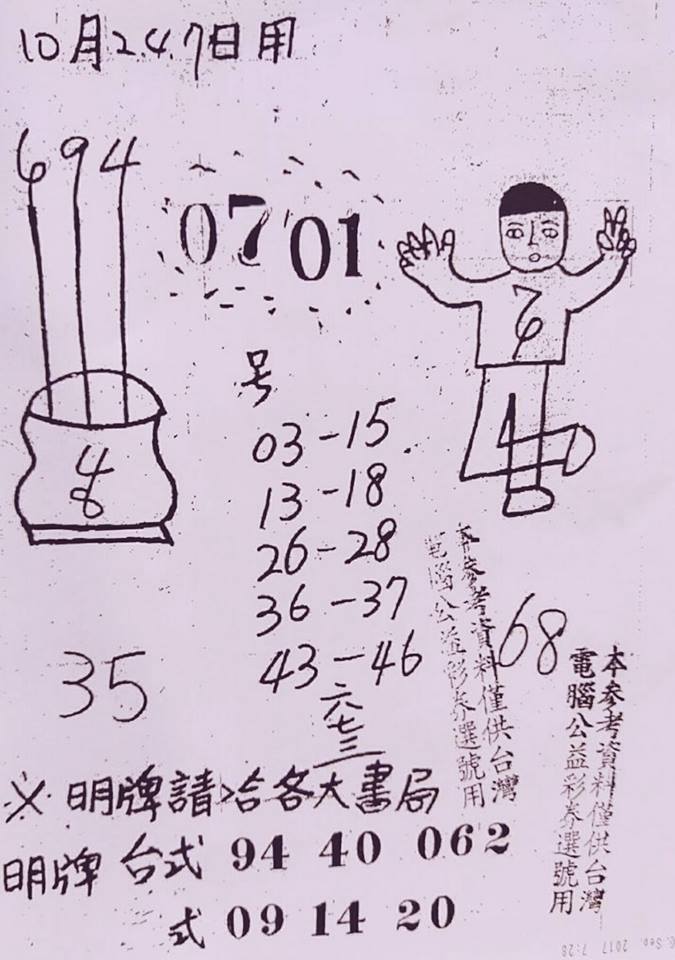 10月2.4.7日用
6 9 4
07 01
7
6
1
4
8
号
03-15
13-18
26-28
36-37
43-46
六
七
三
35
68
本參考資料僅供台灣
電腦公益彩券選號用
本參考資料僅供台灣
電腦公益彩券選號用
※明牌請洽各大書局
明牌 台式 94 40 062
式 09 14 20
Sep. 2017 7:28